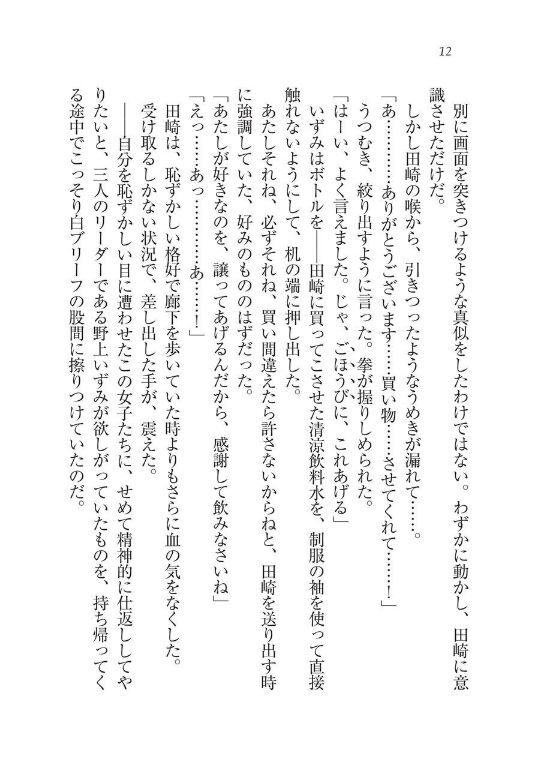 12
別に画面を突きつけるような真似をしたわけではない。わずかに動かし、田崎に意
識させただけだ。
しかし田崎の喉から、引きつったようなうめきが漏れて……。
「あ…………ありがとうございます……買い物……させてくれて……！」
うつむき、絞り出すように言った。拳が握りしめられた。
「はーい、よく言えました。じゃ、ごほうびに、これあげる」
いずみはボトルを――田崎に買ってこさせた清涼飲料水を、制服の袖を使って直接
触れないようにして、机の端に押し出した。
あたしそれね、必ずそれね、買い間違えたら許さないからねと、田崎を送り出す時
に強調していた、好みのもののはずだった。
「あたしが好きなのを、譲ってあげるんだから、感謝して飲みなさいね」
「えっ……あっ…………あ……！」
田崎は、恥ずかしい格好で廊下を歩いていた時よりもさらに血の気をなくした。
受け取るしかない状況で、差し出した手が、震えた。
――自分を恥ずかしい目に遭わせたこの女子たちに、せめて精神的に仕返ししてや
りたいと、三人のリーダーである野上いずみが欲しがっていたものを、持ち帰ってく
る途中でこっそり白ブリーフの股間に擦りつけていたのだ。